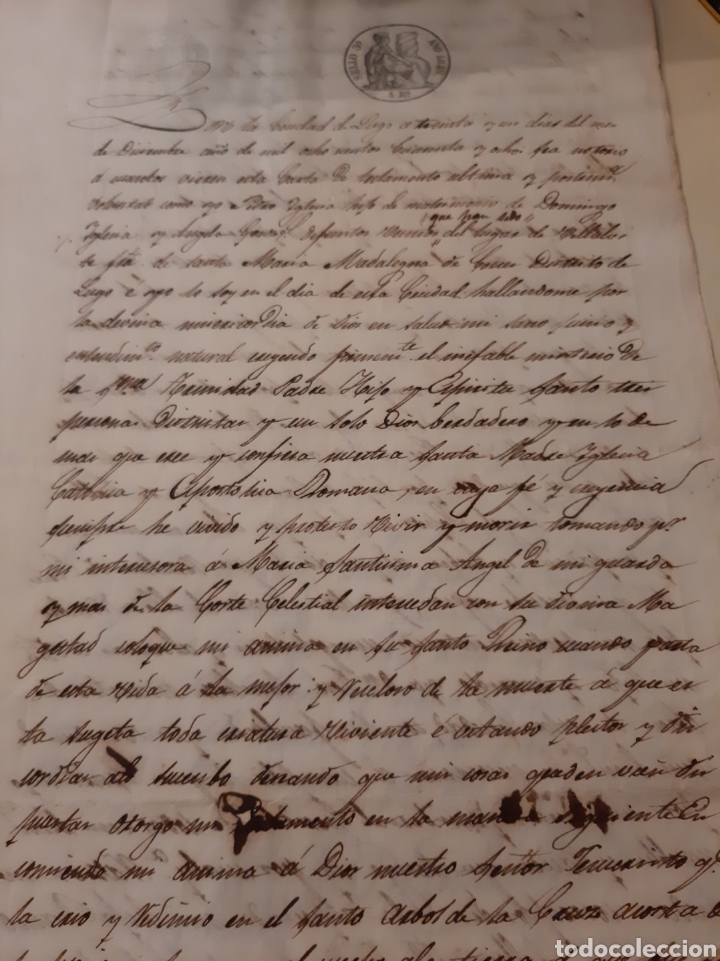 SELLO 4º AÑO 1858
4 Rs
En la Ciudad de Lugo a treinta y un dias del mes
de Diciembre año de mil ochocientos cincuenta y ocho sea notorio
a cuantos vieren esta Carta de testamento ultima y postrim.ª
voluntad como yo Iglesia hijo de matrimonio de Domingo
que pan sido
Iglesia y Angela Gomez defuntos del lugar de
te fra de santa Maria Madalegna de Distrito de
Lugo e yo lo soy en el dia de esta Ciudad hallandome por
la devina misericordia de Dios en salud mi sano juicio y
entendim.to natural creyendo primem.te el inefable misterio de
la Trinidad Padre Hijo y Espiritu Santo tres
personas Distintas y un solo Dios berdadero y en lo de
mas que cree y confiesa nuestra Santa Madre Iglesia
Catolica y Apostolica Romana, en cuya fé y creyencia
siempre he vivido y protesto vivir y morir tomando p.r
mi intersesora á Maria Santisima Angel de mi guarda
y mas de la Corte Celestial intersedan con su divina Ma
gestad coloque mi anima en su Santo Reino cuando parta
de esta vida á la mejor: y receloso de la muerte á que es
ta sugeta toda criatura viviente é evitando pleitos y dis
cordias al deseando que mis cosas queden
puestas otorgo mi testamento en la manera siguiente En
comiendo mi anima á Dios nuestro Señor Jesucristo q.e
la crio y redimio en el Santo Arbol de la Cruz á costa d
todocoleccion.net